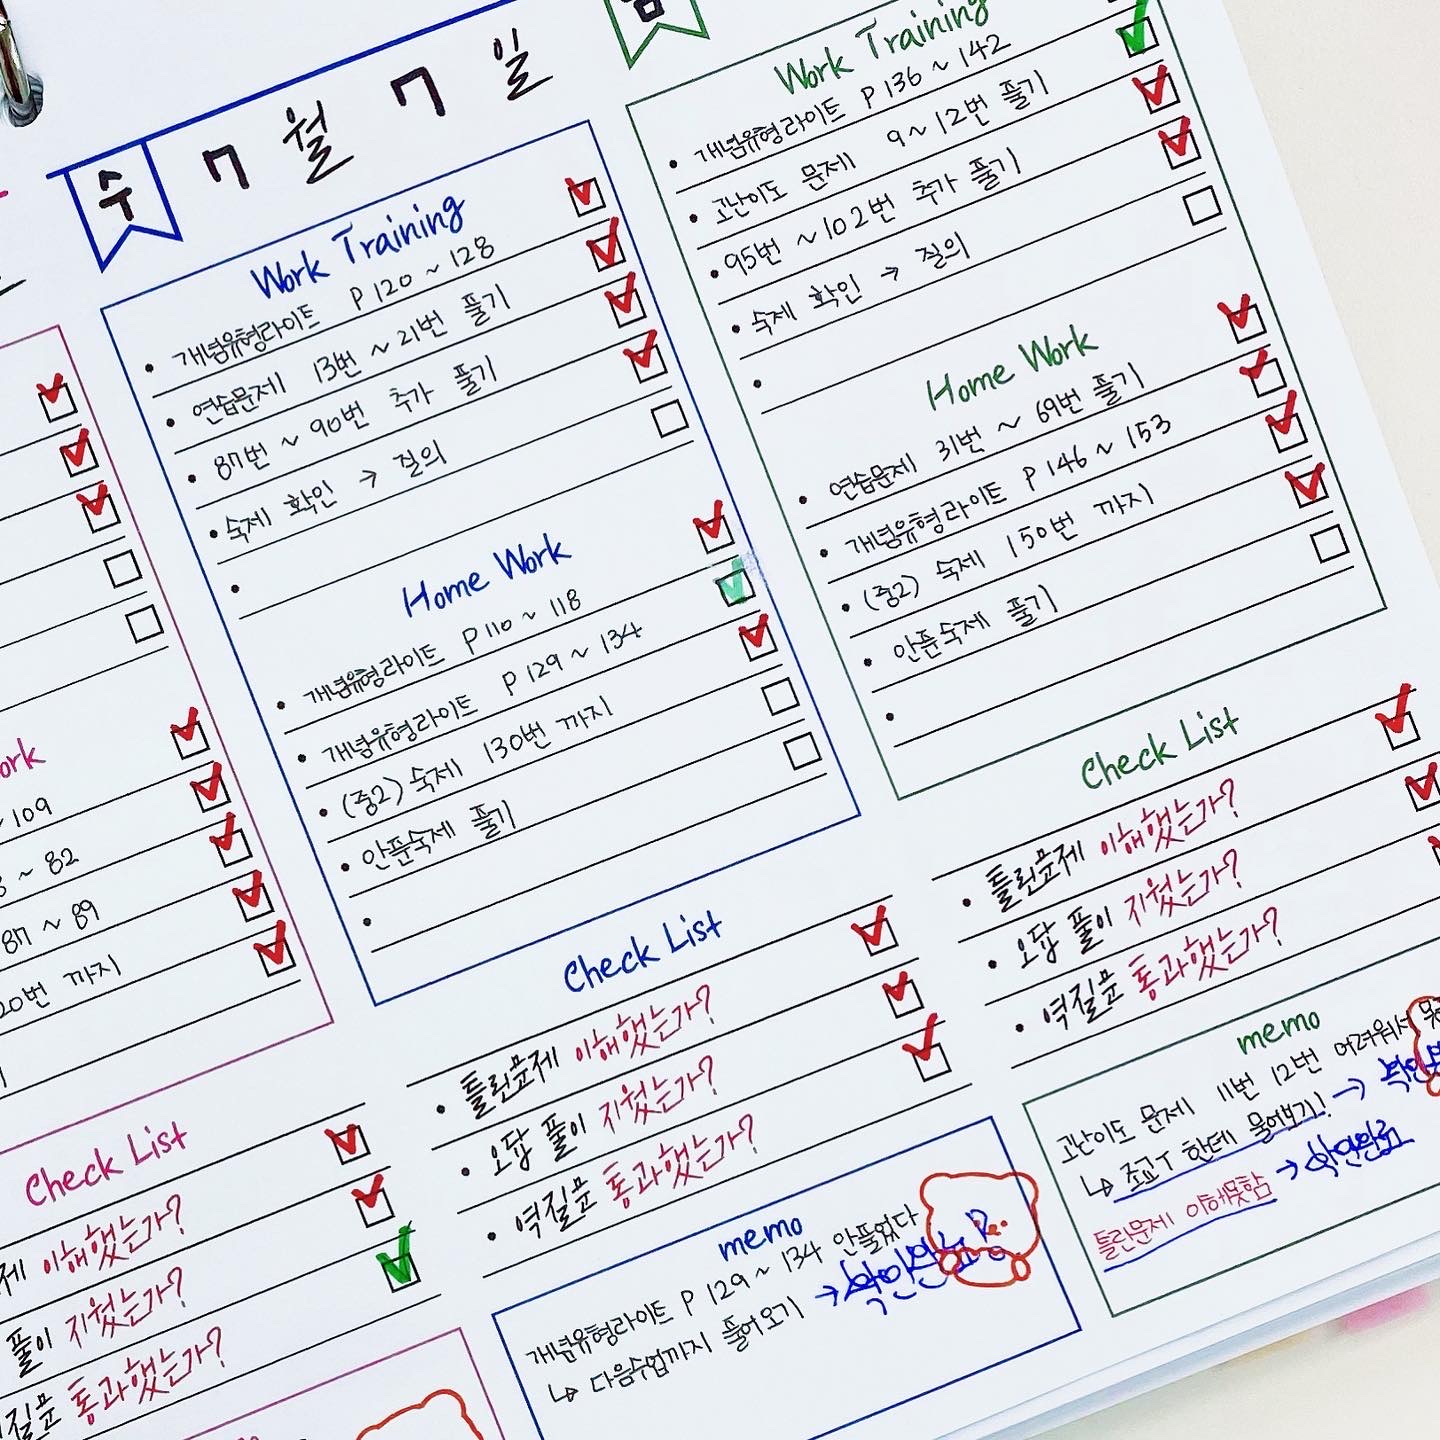 ork
~ 109
~ 82
87 ~ 89
20번 까지
Check List
이해했는가?
풀이 지웠는가?
질문 통과했는가?
수 7월 7일
Work Training
• 개념유형라이트 P 120 ~ 128
• 연습문제 13번 ~ 21번 풀기
• 87번 ~ 90번 추가 풀기
• 숙제 확인 → 질의
•
Home Work
• 개념유형라이트 P 110 ~ 118
• 개념유형라이트 P 129 ~ 134
• (중2) 숙제 130번 까지
• 안푼숙제 풀기
•
Check List
• 틀린문제 이해했는가?
• 오답 풀이 지웠는가?
• 역질문 통과했는가?
memo
개념유형라이트 P 129 ~ 134 안풀었다
↳ 다음수업까지 풀어오기 → 확인완료
Work Training
• 개념유형라이트 P 136 ~ 142
• 고난이도 문제 9 ~ 12번 풀기
• 95번 ~ 102번 추가 풀기
• 숙제 확인 → 질의
•
Home Work
• 연습문제 31번 ~ 69번 풀기
• 개념유형라이트 P 146 ~ 153
• (중2) 숙제 150번 까지
• 안푼숙제 풀기
•
Check List
• 틀린문제 이해했는가?
• 오답 풀이 지웠는가?
• 역질문 통과했는가?
memo
고난이도 문제 11번 12번 어려워서
↳ 조교T 한테 물어보기! →
틀린문제 이해못함 → 확인완료